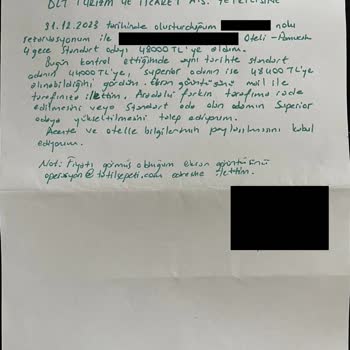 DLT TURİZM VE TİCARET A.Ş. YETKİLİSİNE
31.12.2023 tarihinde oluşturduğum nolu
rezervasyonum ile Oteli - Pamuk
4 gece standart odayı 48000 TL'ye aldım.
Bugün kontrol ettiğimde aynı tarihte standart
odanın TL'ye, superior odanın ise 48400 TL'ye
alınabildiğini gördüm. Ekran görüntüsünü mail ile
tarafınıza ilettim. Aradaki farkın tarafıma iade
edilmesini veya standart oda olan odamın Superior
odaya yükseltilmesini talep ediyorum.
Acente ve otelle bilgilerimin paylaşılmasını kabul
ediyorum.
Not: Fiyatı görmüş olduğum ekran görüntüsünü
operasyon@tatilsepeti.com adresine ilettim.